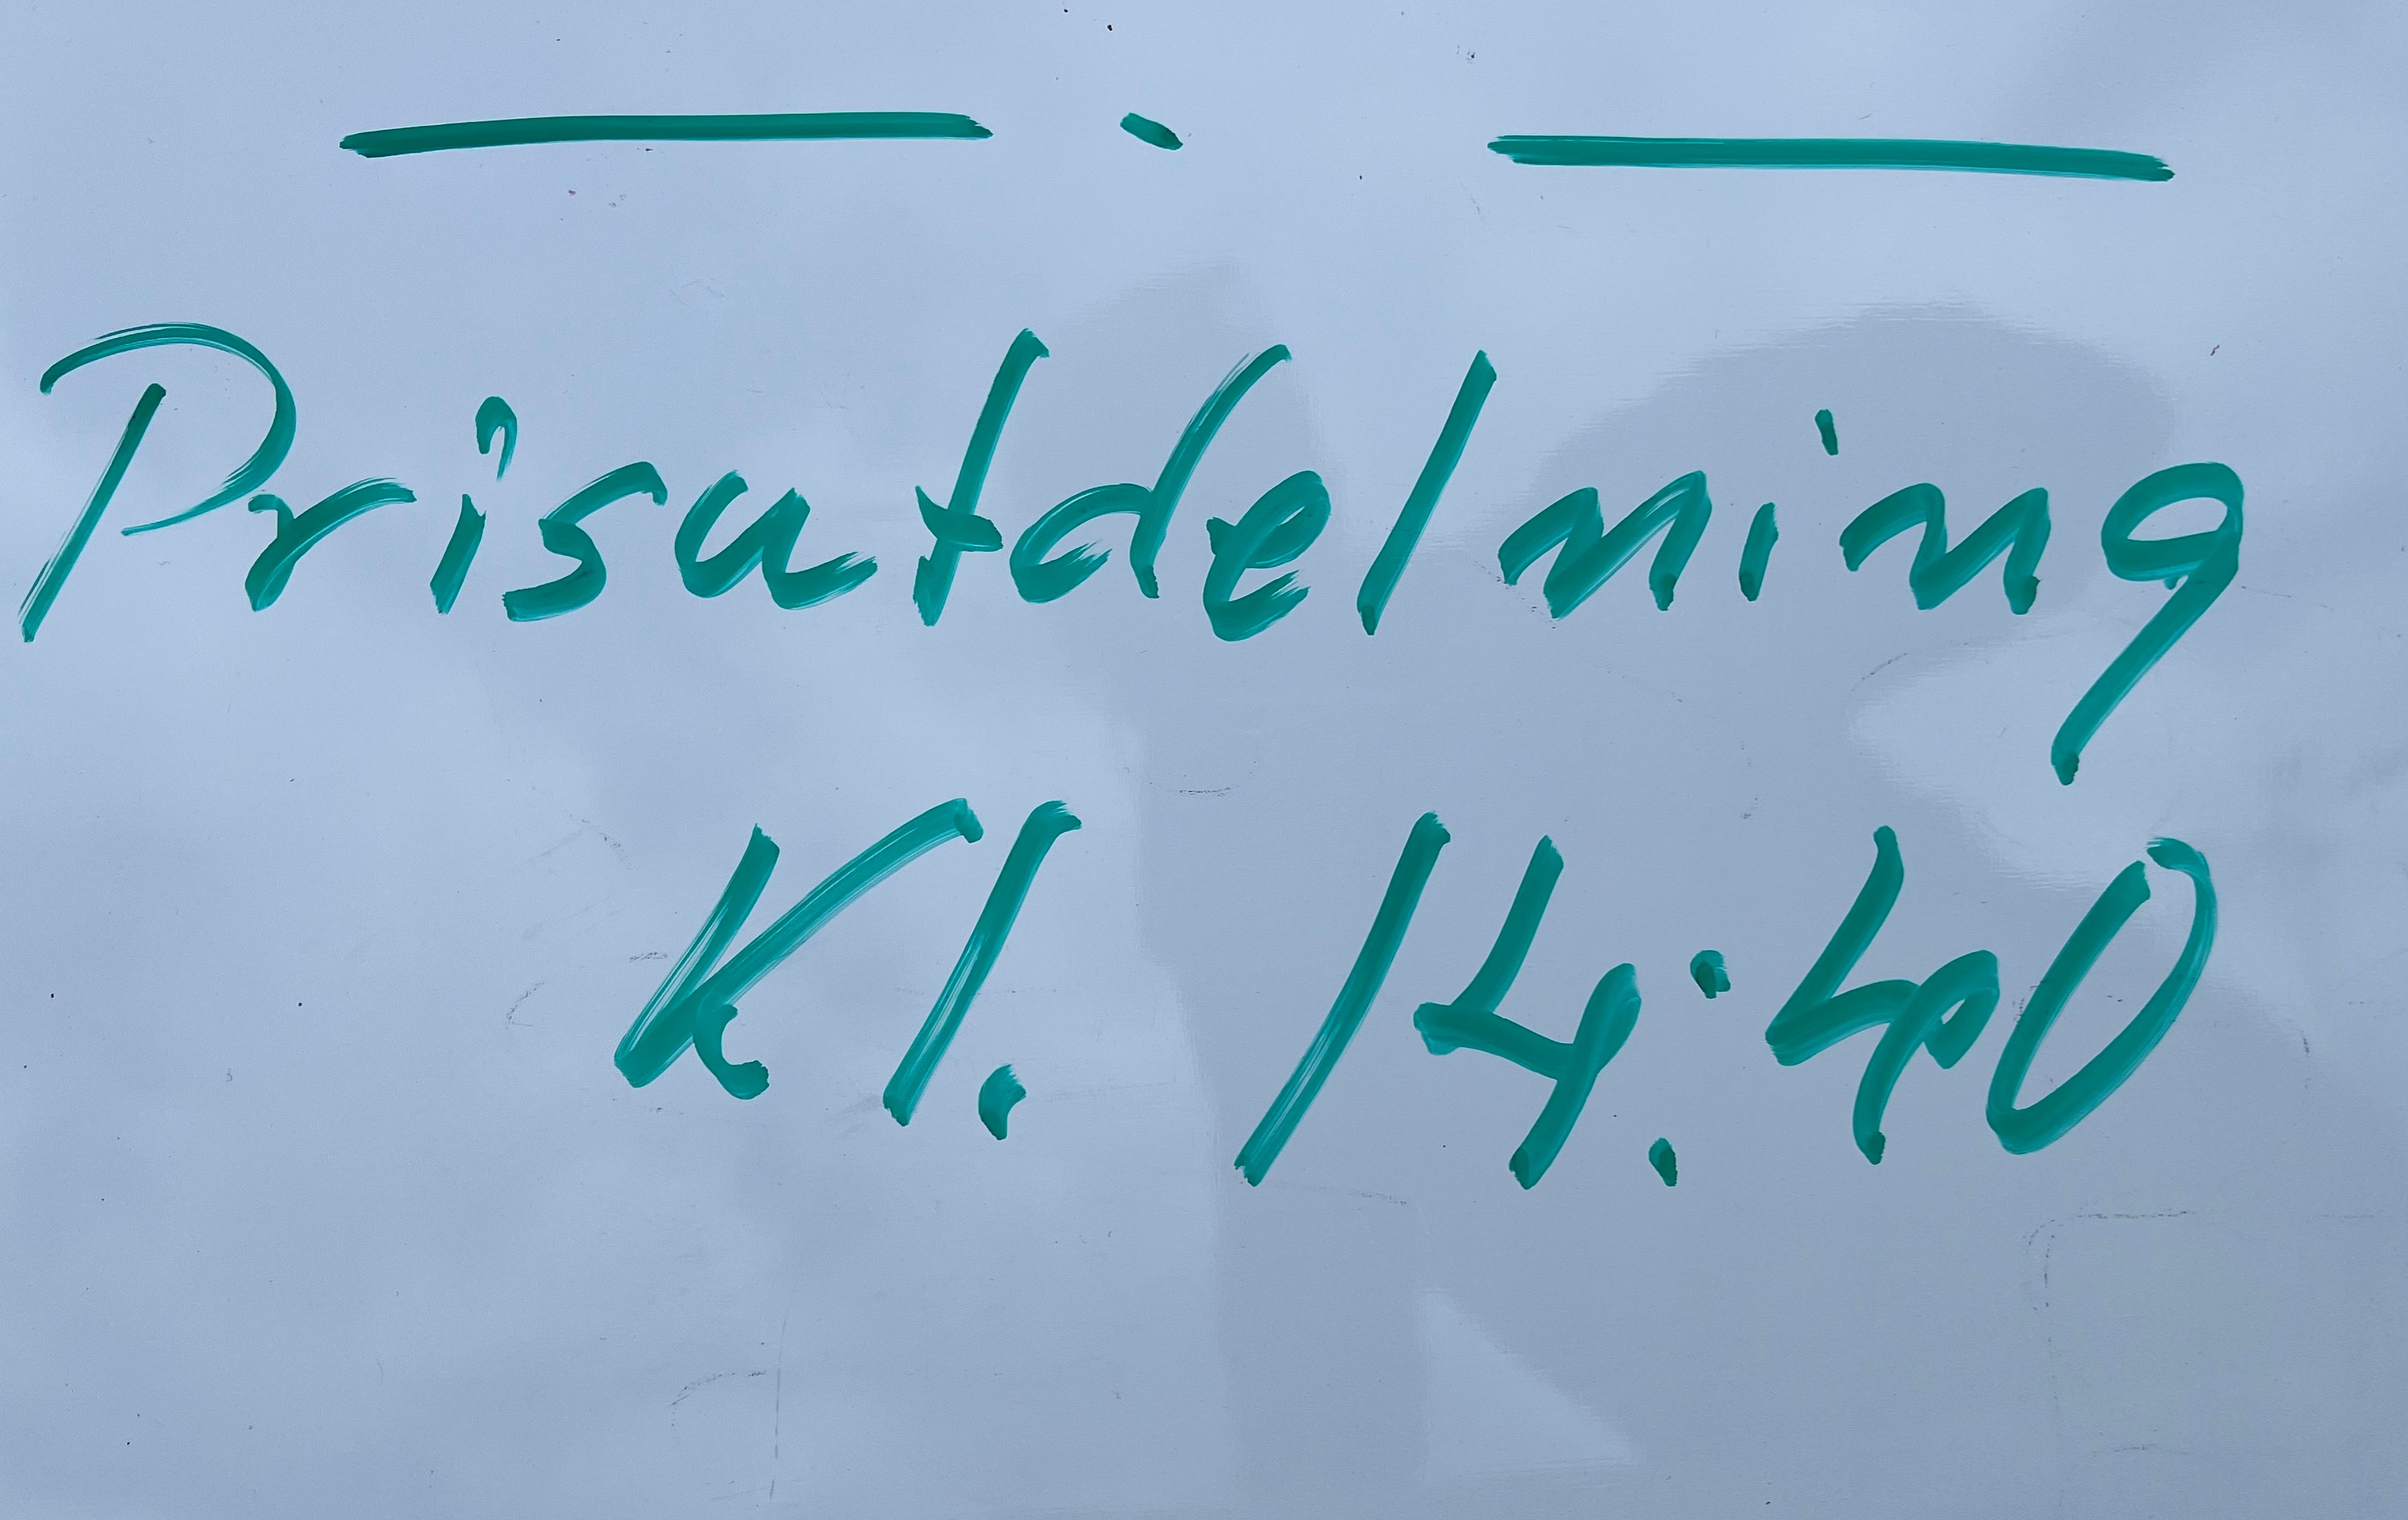 Prisutdelning
Kl. 14:40